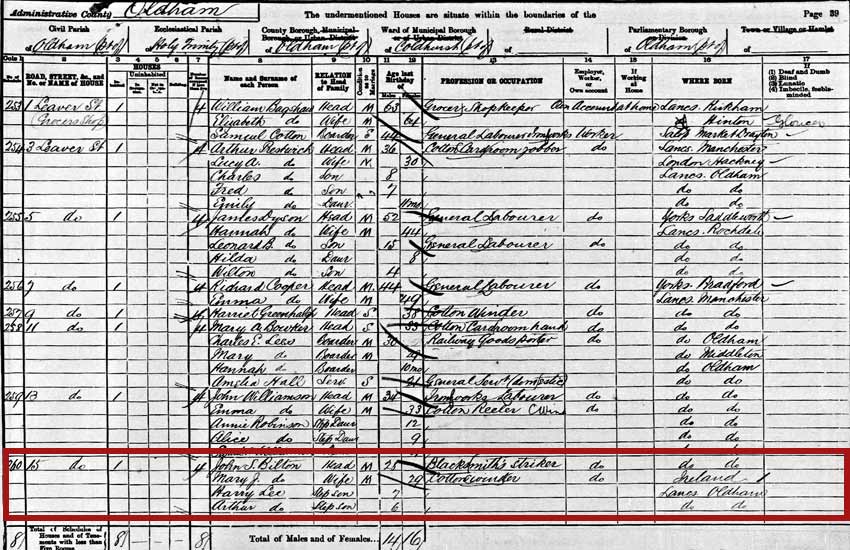 Administrative County Oldham The undermentioned Houses are situate within the boundaries of the Page 39
Civil Parish Ecclesiastical Parish County Borough, Municipal Borough, or Urban District Ward of Municipal Borough or of Urban District Rural District Parliamentary Borough or Division Town or Village or Hamlet
of Oldham (pt of) of Holy Trinity (pt of) of Oldham (pt of) of Coldhurst (pt of) of of Oldham (pt of) of
HOUSES
ROAD, STREET, &c., and No. or NAME of HOUSE Inhabited Uninhabited Name and Surname of each Person RELATION to Head of Family Condition as to Marriage Age last Birthday of PROFESSION OR OCCUPATION Employer, Worker, or Own account If Working at Home WHERE BORN If (1) Deaf and Dumb (2) Blind (3) Lunatic (4) Imbecile, feeble-minded
253 1 Leaver St 1 4 William Bagshaw Head M 63 Grocer Shopkeeper Own Account at home Lancs. Kirkham
(Grocers Shop) Elizabeth do Wife M 64 Hinton Gloucer
Samuel Cotton Boarder S 44 General Labourer Ironworks Worker Salop Market Drayton
254 3 Leaver St 1 4 Arthur Prestwick Head M 36 Cotton Cardroom Jobber do Lancs. Manchester
Lucy A. do Wife M 30 London Hackney
Charles do Son 8 Lancs. Oldham
Fred do Son 7 do do
Emily do Daur 11mo do do
255 5 do 1 4 James Dyson Head M 52 General Labourer do Yorks Saddleworth
Hannah do Wife M 44 Lancs. Rochdale
Leonard B. do Son 15 General Labourer do do do
Hilda do Daur 8 do do
Wilton do Son 4 do do
256 7 do 1 4 Richard Cooper Head M 44 General Labourer do Yorks. Bradford
Emma do Wife M 49 Lancs Manchester
257 9 do 1 4 Harriet Greenhalgh Head S 38 Cotton Winder do do do
258 11 do 1 4 Mary A. Bowker Head S 53 Cotton Cardroom hand do do do
Charles E. Lees Boarder M 30 Railway Goods porter do do Oldham
Mary do Boarder M do Middleton
Hannah do Boarder 10mo do Oldham
Amelia Hall Serv S 21 General Servt (domestic) do do
259 13 do 1 4 John Williamson Head M 34 Ironworks Labourer do do do
Emma do Wife M 33 Cotton Reeler do do do
Annie Robinson Step Daur 12 do do
Alice do Step Daur 9 do do
260 15 do 1 4 John S. Bilton Head M 25 Blacksmith's Striker do do do
Mary J. do Wife M 29 Cotton winder do Ireland
Harry Lee Stepson 7 Lancs Oldham
Arthur do Stepson 6 do do
8 Total of Schedules of Houses and of Tenements with less than Five Rooms 8 8 Total of Males and of Females... 14 16